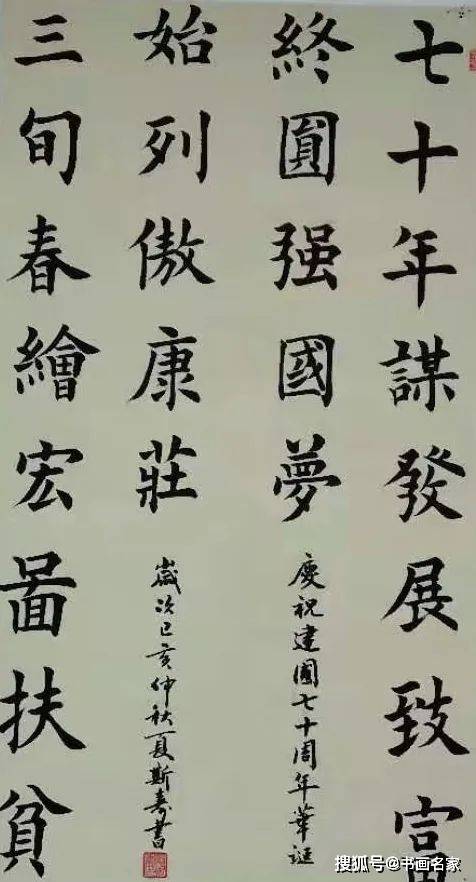 七十年謀發展致富
終圓强國夢
慶祝建國七十周年華誕
始列傲康莊
歲次己亥仲秋夏斯寿書
三旬春繪宏啚扶貧
搜狐号@书画名家